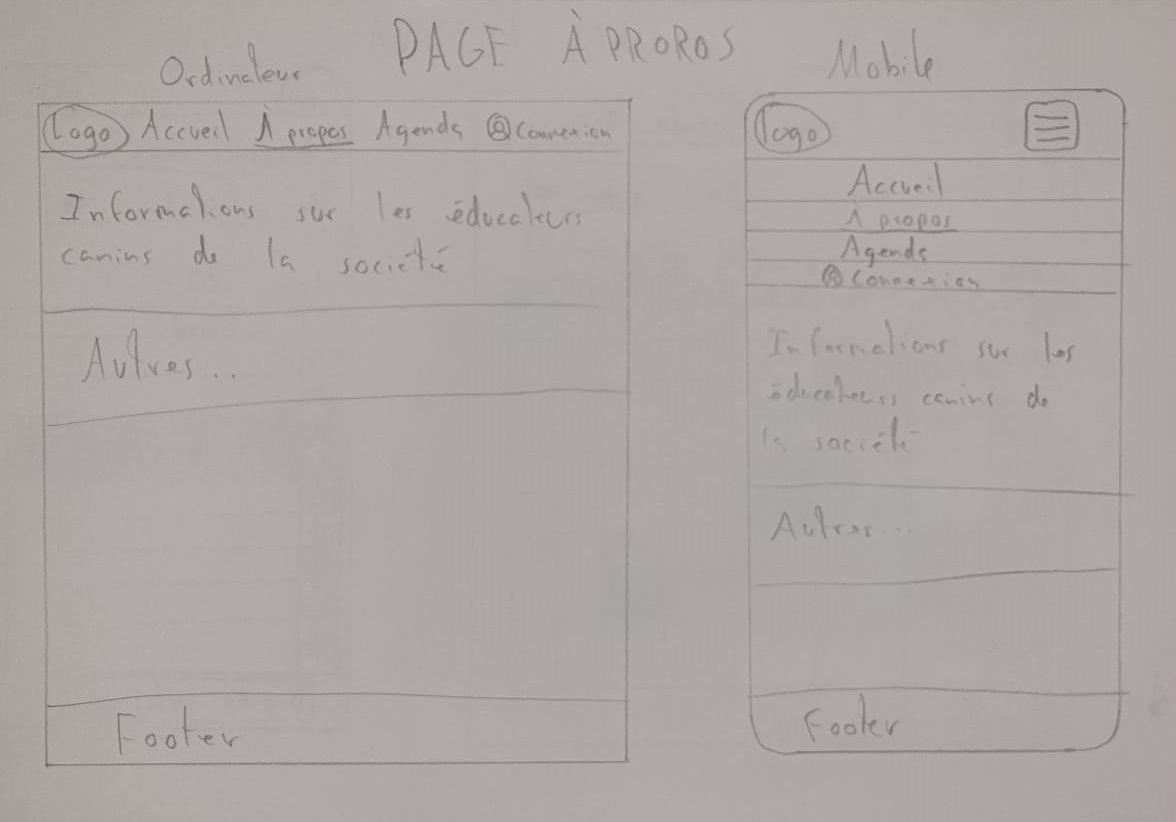 PAGE À PROROS
Ordinateur
Mobile
Logo Accueil À propos Agenda Connexion
Informations sur les éducateurs
canins de la société
Autres...
Footer
logo
Accueil
À propos
Agenda
Connexion
Informations sur les
éducateurs canins de
la société
Autres...
Footer